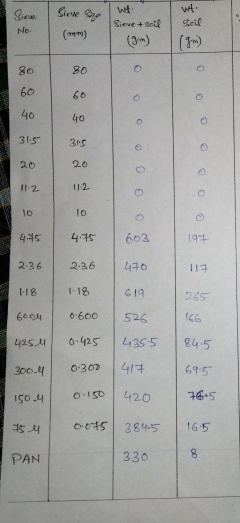 Sieve No. Sieve Size (mm) Wt. Sieve+soil (gm) Wt. Soil (gm)
80 80 0 0
60 60 0 0
40 40 0 0
31.5 31.5 0 0
20 20 0 0
11.2 11.2 0 0
10 10 0 0
4.75 4.75 603 197
2.36 2.36 470 117
1.18 1.18 619 265
600μ 0.600 526 166
425μ 0.425 435.5 84.5
300μ 0.300 417 69.5
150μ 0.150 420
75μ 0.075 384.5 16.5
PAN 330 8